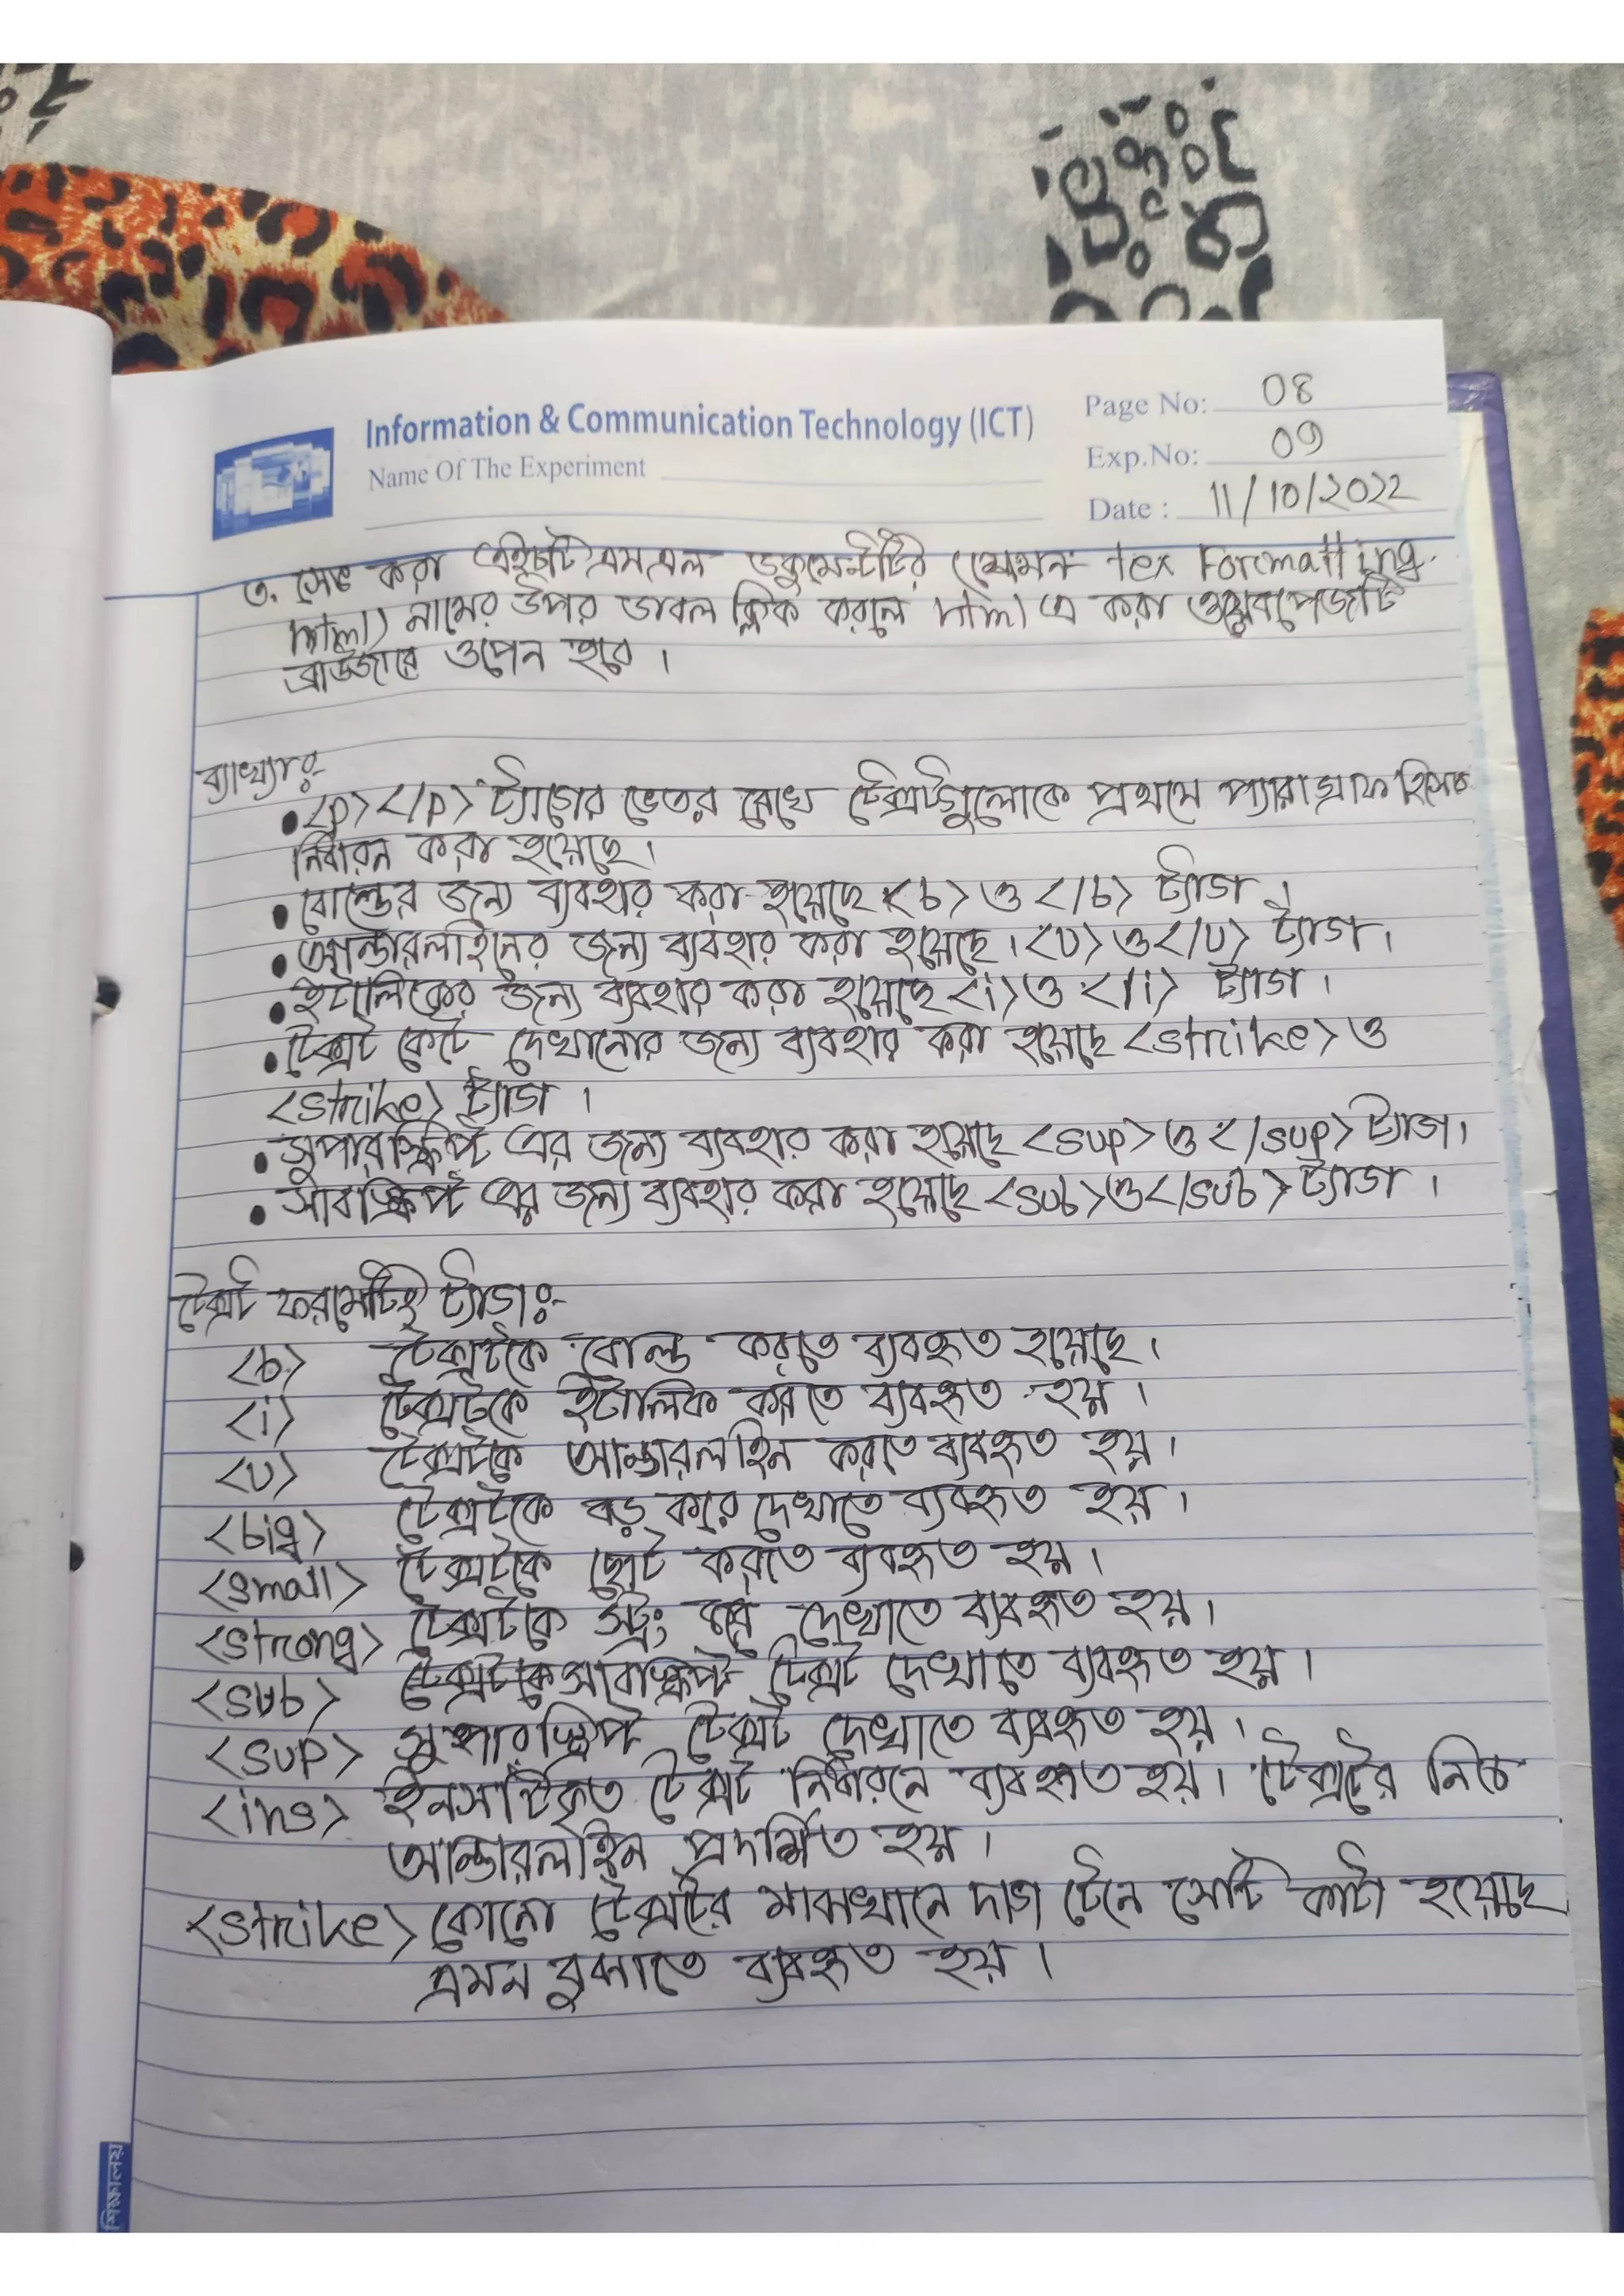 Information & Communication Technology (ICT)
Name Of The Experiment
Page No: 08
Exp.No: 09
Date : 11/10/2022
৩. সেভ করা এইচটিএমএল ডকুমেন্টটির (যেমন tex Formatting.
html) নামের উপর ডাবল ক্লিক করলে html এ করা ওয়েবপেজটি
ব্রাউজারে ওপেন হবে ।
ব্যাখ্যাঃ-
• <p> </p> ট্যাগের ভেতর রেখে টেক্সটগুলোকে প্রথমে প্যারাগ্রাফ হিসেবে
নির্ধারন করা হয়েছে।
• বোল্ডের জন্য ব্যবহার করা হয়েছে <b> ও </b> ট্যাগ ।
• আন্ডারলাইনের জন্য ব্যবহার করা হয়েছে। <U> ও </U> ট্যাগ ।
• ইটালিকের জন্য ব্যবহার করা হয়েছে <i> ও </i> ট্যাগ ।
• টেক্সট কেটে দেখানোর জন্য ব্যবহার করা হয়েছে <strike> ও
<strike> ট্যাগ ।
• সুপারস্ক্রিপ্ট এর জন্য ব্যবহার করা হয়েছে <sup> ও </sup> ট্যাগ।
• সাবস্ক্রিপ্ট এর জন্য ব্যবহার করা হয়েছে <sub> ও </sub> ট্যাগ ।
টেক্সট ফরমেটিং ট্যাগঃ-
<b> টেক্সটকে বোল্ড করতে ব্যবহৃত হয়েছে।
<i> টেক্সটকে ইটালিক করতে ব্যবহৃত হয় ।
<U> টেক্সটকে আন্ডারলাইন করতে ব্যবহৃত হয় ।
<big> টেক্সটকে বড় করে দেখাতে ব্যবহৃত হয় ।
<small> টেক্সটকে ছোট করতে ব্যবহৃত হয় ।
<strong> টেক্সটকে স্ট্রং করে দেখাতে ব্যবহৃত হয় ।
<sub> টেক্সটকে সাবস্ক্রিপ্ট টেক্সট দেখাতে ব্যবহৃত হয় ।
<sup> সুপারস্ক্রিপ্ট টেক্সট দেখাতে ব্যবহৃত হয় ।
<ins> ইনসার্টকৃত টেক্সট নির্ধারনে ব্যবহৃত হয়। টেক্সটের নিচে
আন্ডারলাইন প্রদর্শিত হয় ।
<strike> কোনো টেক্সটের মাঝখানে দাগ টেনে সেটি কাটা হয়েছে
এমন বুঝাতে ব্যবহৃত হয় ।
শিক্ষালয়